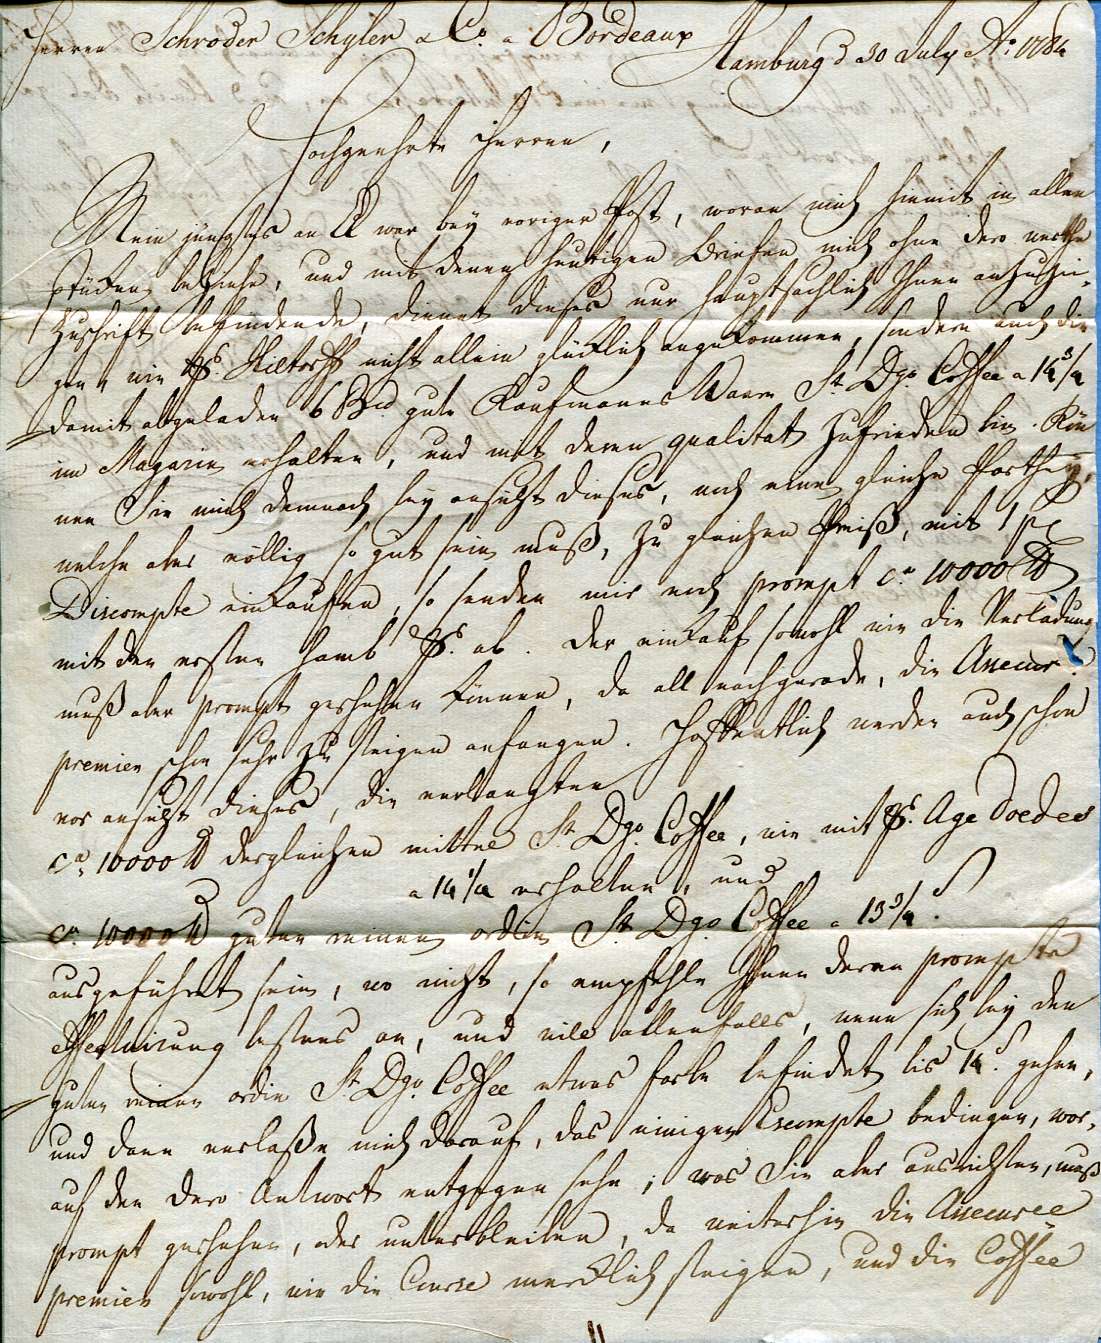 Herren Schröder Schyler & Co. a Bordeaux
Hamburg d 30 July Ao. 1784
Hochgeehrte Herren,
Mein jüngstes an E war bey voriger Post, woran mich hiemit in allen
stücken beziehe, und mit denen heutigen Briefen mich ohne dero werthe
Zuschrift befindende, dienet dieses nur hauptsächlich Ihnen anzuzei-
gen, wie nicht allein glücklich angekommen, sondern auch die
damit abgeladen 6 gute Kaufmanns Waare St. Dgo. Coffee a 14 3/4
im Magazin erhalten, und mit deren qualitat zufrieden bin. Kön
nen Sie mich demnach bey ansicht dieses, noch eine gleiche Parthey,
welche aber völlig so gut sein muß, zu gleichen Preiß, mit 1 p
Discompte einkaufen, so senden mir noch prompt ca. 10000 ℔
mit den ersten Hamb. ab. Der einkauf sowohl wie die Verladung
muß aber prompt geschehen können, da all nachgerade, die Assecur.
premien schon sehr zu steigen anfangen. Hoffentlich werden auch schon
vor ansicht dieses, die verlangten
ca. 10000 ℔ dergleichen mittel St. Dgo. Coffee, wie mit Age Doedes
a 14 1/4 erhalten, und
ca. 10000 ℔ guten reinen ordin St. Dgo. Coffee a 13 3/4 s.
ausgeführet sein, wo nicht, so empfehle Ihnen deren prompte
effectuirung bestens an, und will allenfalls, wenn sich bey den
guten reinen ordin St. Dgo. Coffee etwas farbe befindet bis 14 s. gehen,
und dann verlaße mich darauf, das einigen Escompte bedingen, wor-
auf den dero Antwort entgegen sehe; was Sie aber ausrichten, muß
prompt geschehen, oder unterbleiben, da weiterhin die Assecurce
premien sowohl, wie die Course mercklich steigen, und die Coffee